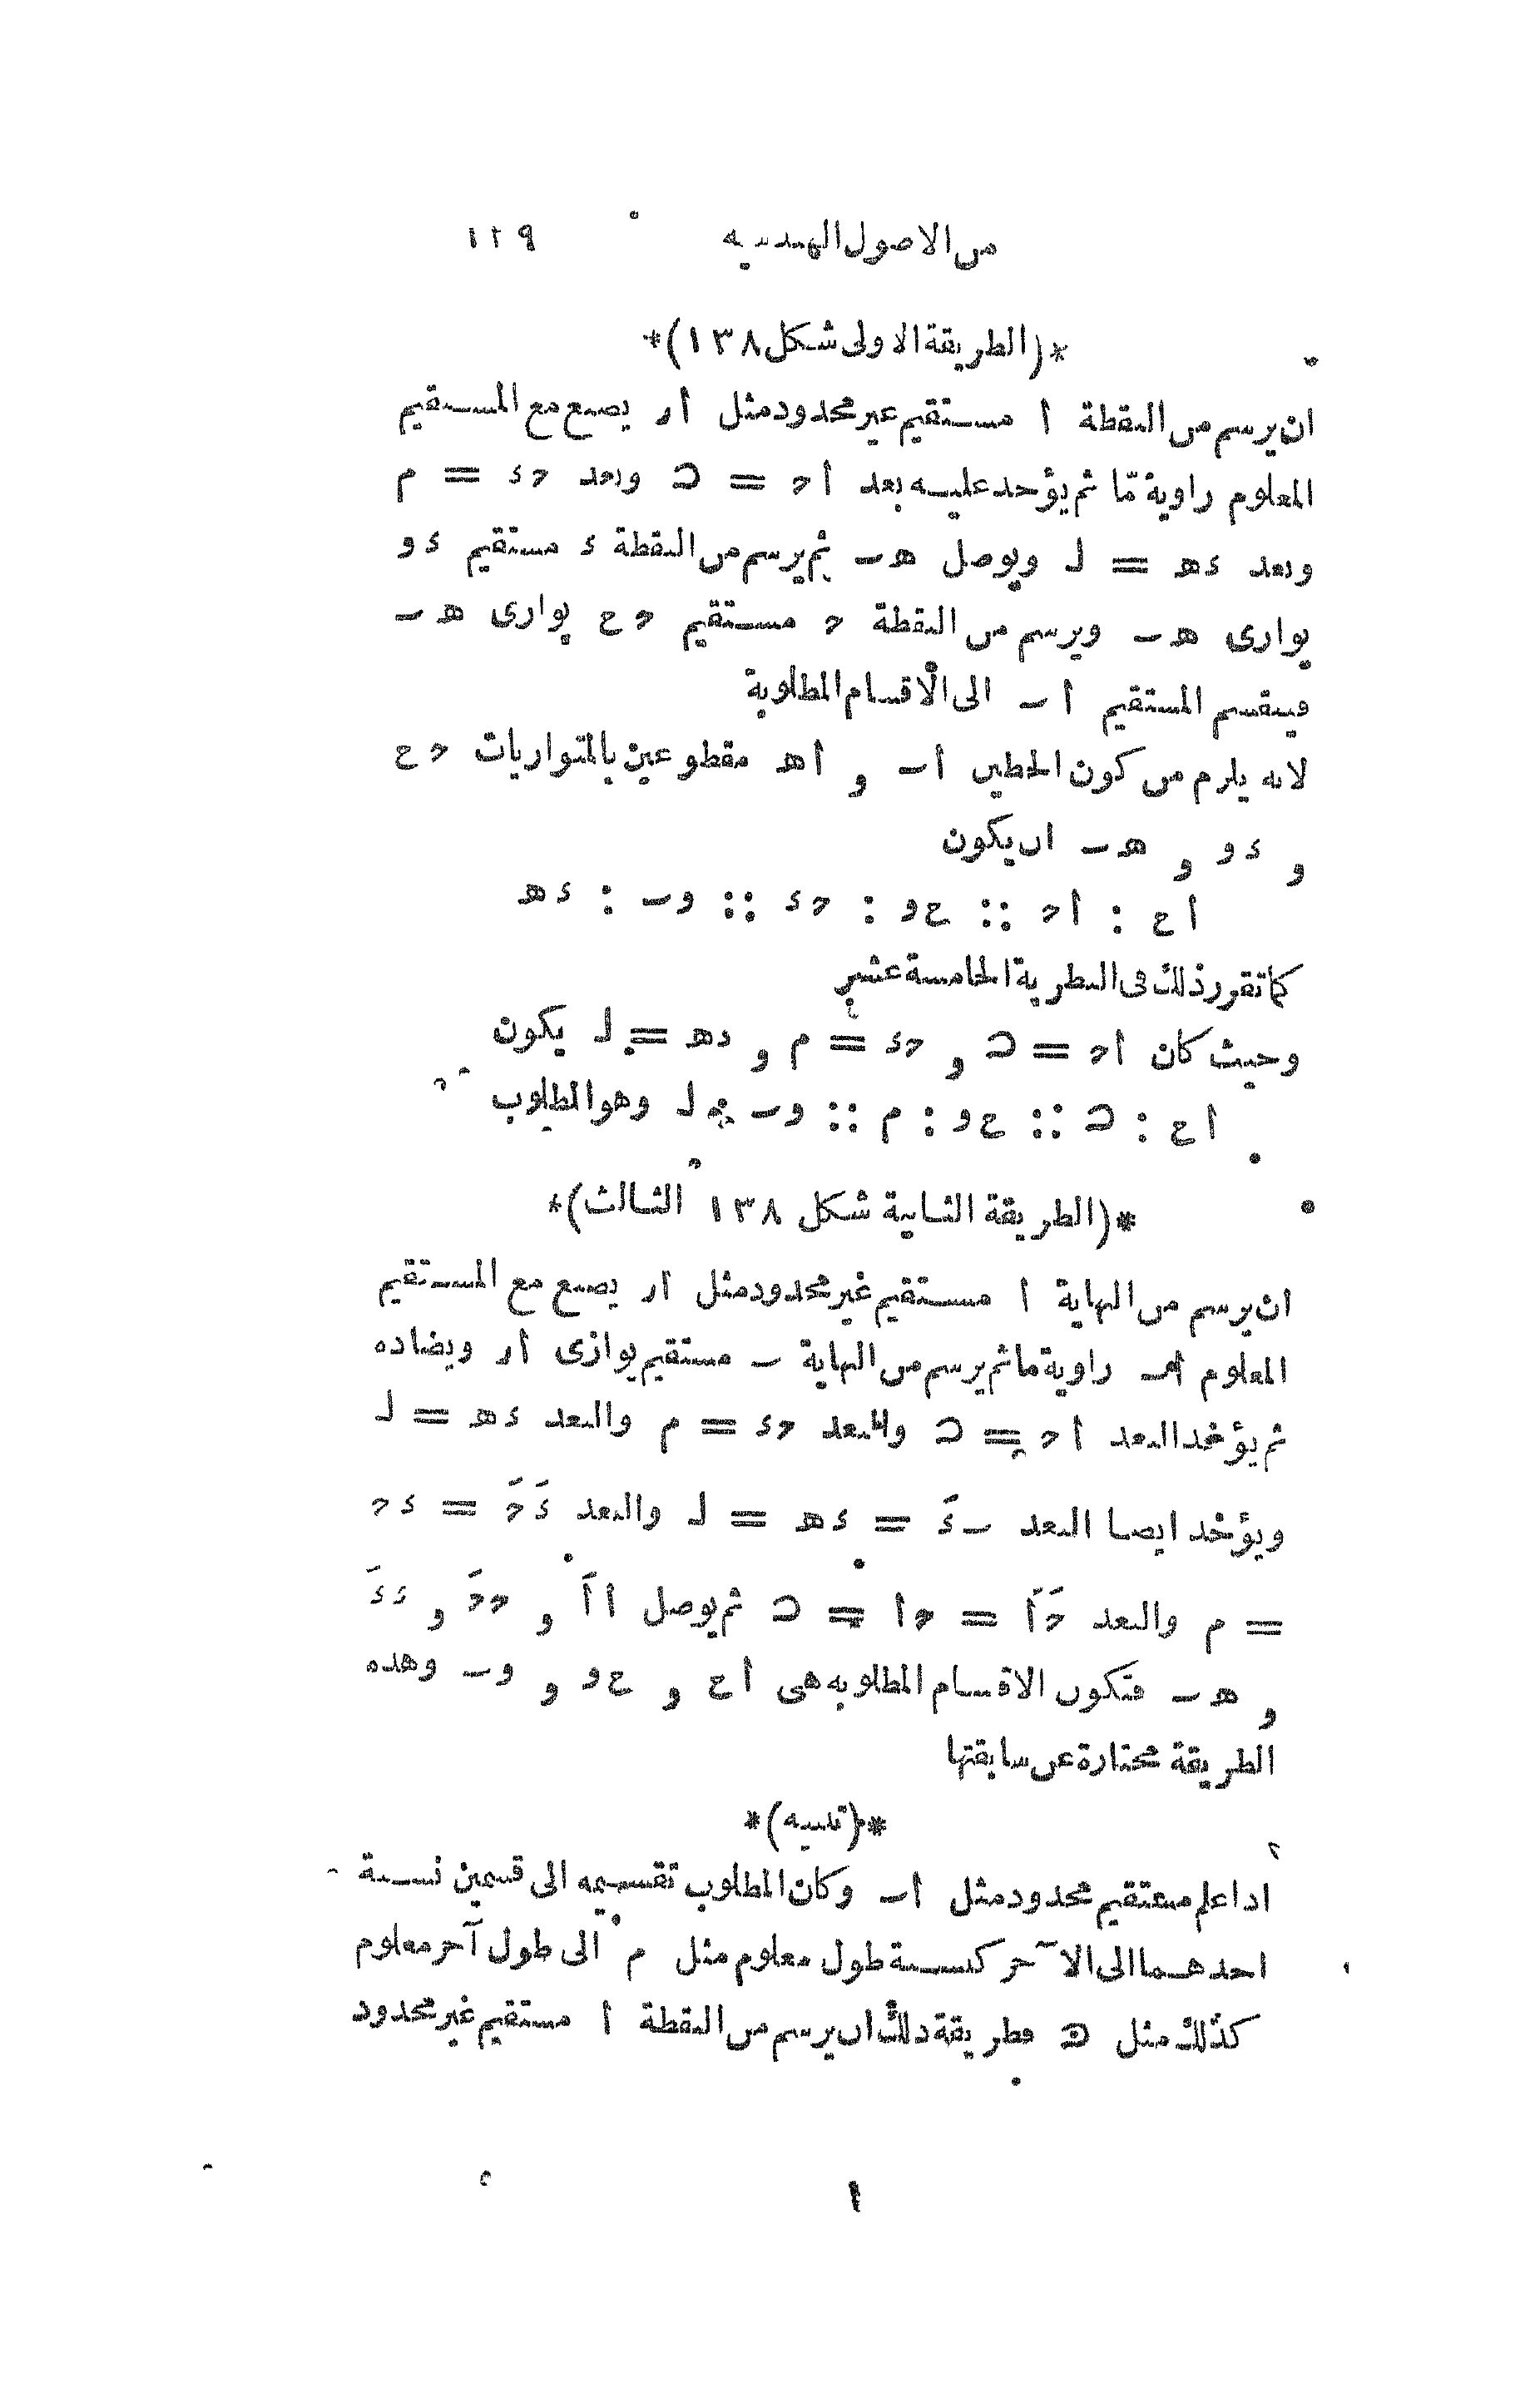 من الاصول الهندسيه ١٢٩
*(الطريقة الاولى شكل ١٣٨)*
ان يرسم من النقطة ا مستقيم غير محدود مثل ار يصنع مع المستقيم
المعلوم زاوية مّا ثم يؤخد عليه بعد اح = ں وبعد حء = م
وبعد ءهـ = ل ويوصل هـ ٮ ثم يرسم من النقطة ء مستقيم ء و
يوازى هـ ٮ ويرسم من النقطة ح مستقيم ح ع يوازى هـ ٮ
فينقسم المستقيم ا ٮ الى الاقسام المطلوبة
لانه يلزم من كون الخطين ا ٮ و اهـ مقطوعين بالمتوازيات ح ع
و ء و و هـ ٮ ان يكون
ا ع : اح :: ع و : حء :: و ٮ : ءهـ
كما تقرر ذلك فى النظرية الخامسة عشر
وحيث كان اح = ں و حء = م و ءهـ = ل يكون
ا ع : ں :: ع و : م :: و ٮ : ل وهو المطلوب
*(الطريقة الثانية شكل ١٣٨ الثالث)*
ان يرسم من النهاية ا مستقيم غير محدود مثل ار يصنع مع المستقيم
المعلوم ا ٮ زاوية ما ثم يرسم من النهاية ٮ مستقيم يوازى ار ويضاده
ثم يؤخد البعد اح = ں والبعد حء = م والبعد ءهـ = ل
ويؤخد ايضا البعد ٮ ءَ = ءهـ = ل والبعد ءَ حَ = ء ح
= م والبعد حَ اَ = ح ا = ں ثم يوصل ا اَ و ح حَ و ء ءَ
و هـ ٮ فتكون الاقسام المطلوبه هى ا ع و ع و و و ٮ وهذه
الطريقة مختارة عن سابقتها
*(تنبيه)*
اذا علم مستقيم محدود مثل ا ٮ وكان المطلوب تقسيمه الى قسمين نسبة
احدهما الى الآخر كنسبة طول معلوم مثل م الى طول آخر معلوم
كذلك مثل ں فطريقة ذلك ان يرسم من النقطة ا مستقيم غير محدود